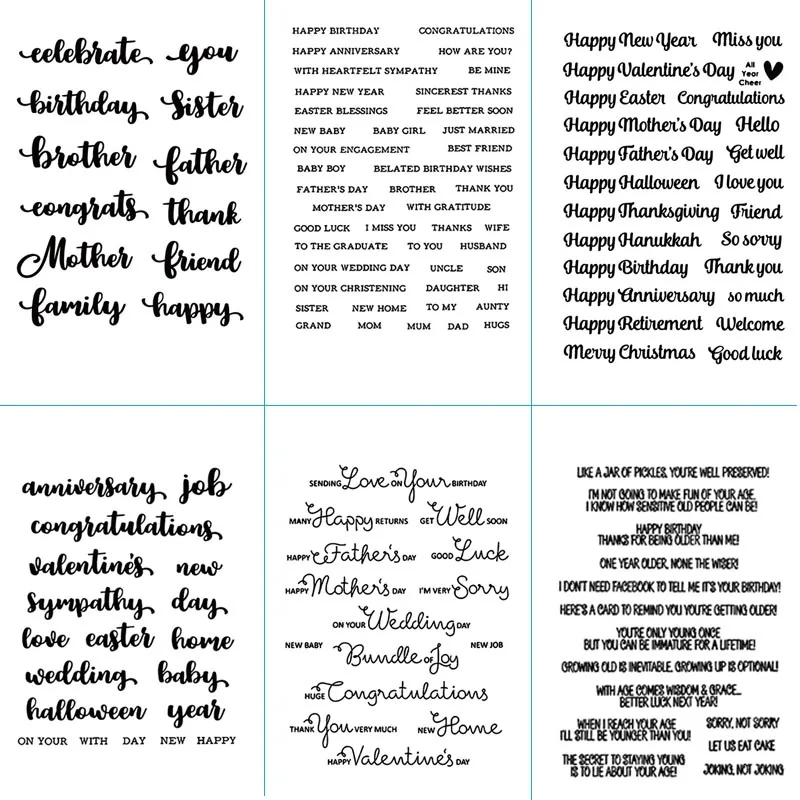 celebrate you
birthday Sister
brother father
congrats thank
Mother friend
family happy
HAPPY BIRTHDAY CONGRATULATIONS
HAPPY ANNIVERSARY HOW ARE YOU?
WITH HEARTFELT SYMPATHY BE MINE
HAPPY NEW YEAR SINCEREST THANKS
EASTER BLESSINGS FEEL BETTER SOON
NEW BABY BABY GIRL JUST MARRIED
ON YOUR ENGAGEMENT BEST FRIEND
BABY BOY BELATED BIRTHDAY WISHES
FATHER'S DAY BROTHER THANK YOU
MOTHER'S DAY WITH GRATITUDE
GOOD LUCK I MISS YOU THANKS WIFE
TO THE GRADUATE TO YOU HUSBAND
ON YOUR WEDDING DAY UNCLE SON
ON YOUR CHRISTENING DAUGHTER HI
SISTER NEW HOME TO MY AUNTY
GRAND MOM MUM DAD HUGS
Happy New Year Miss you
Happy Valentine's Day All Year Cheer
Happy Easter Congratulations
Happy Mother's Day Hello
Happy Father's Day Get well
Happy Halloween I love you
Happy Thanksgiving Friend
Happy Hanukkah So sorry
Happy Birthday Thank you
Happy Anniversary so much
Happy Retirement Welcome
Merry Christmas Good luck
anniversary job
congratulations
valentine's new
sympathy day
love easter home
wedding baby
halloween year
ON YOUR WITH DAY NEW HAPPY
SENDING Love ON Your BIRTHDAY
MANY Happy RETURNS GET Well SOON
HAPPY Father's DAY GOOD Luck
HAPPY Mother's DAY I'M VERY Sorry
ON YOUR Wedding DAY
NEW BABY Bundle OF Joy NEW JOB
HUGE Congratulations
THANK You VERY MUCH NEW Home
HAPPY Valentine's DAY
LIKE A JAR OF PICKLES, YOU'RE WELL PRESERVED!
I'M NOT GOING TO MAKE FUN OF YOUR AGE.
I KNOW HOW SENSITIVE OLD PEOPLE CAN BE!
HAPPY BIRTHDAY
THANKS FOR BEING OLDER THAN ME!
ONE YEAR OLDER, NONE THE WISER!
I DON'T NEED FACEBOOK TO TELL ME IT'S YOUR BIRTHDAY!
HERE'S A CARD TO REMIND YOU YOU'RE GETTING OLDER!
YOU'RE ONLY YOUNG ONCE
BUT YOU CAN BE IMMATURE FOR A LIFETIME!
GROWING OLD IS INEVITABLE, GROWING UP IS OPTIONAL!
WITH AGE COMES WISDOM & GRACE...
BETTER LUCK NEXT YEAR!
WHEN I REACH YOUR AGE
I'LL STILL BE YOUNGER THAN YOU!
SORRY, NOT SORRY
LET US EAT CAKE
THE SECRET TO STAYING YOUNG
IS TO LIE ABOUT YOUR AGE!
JOKING, NOT JOKING